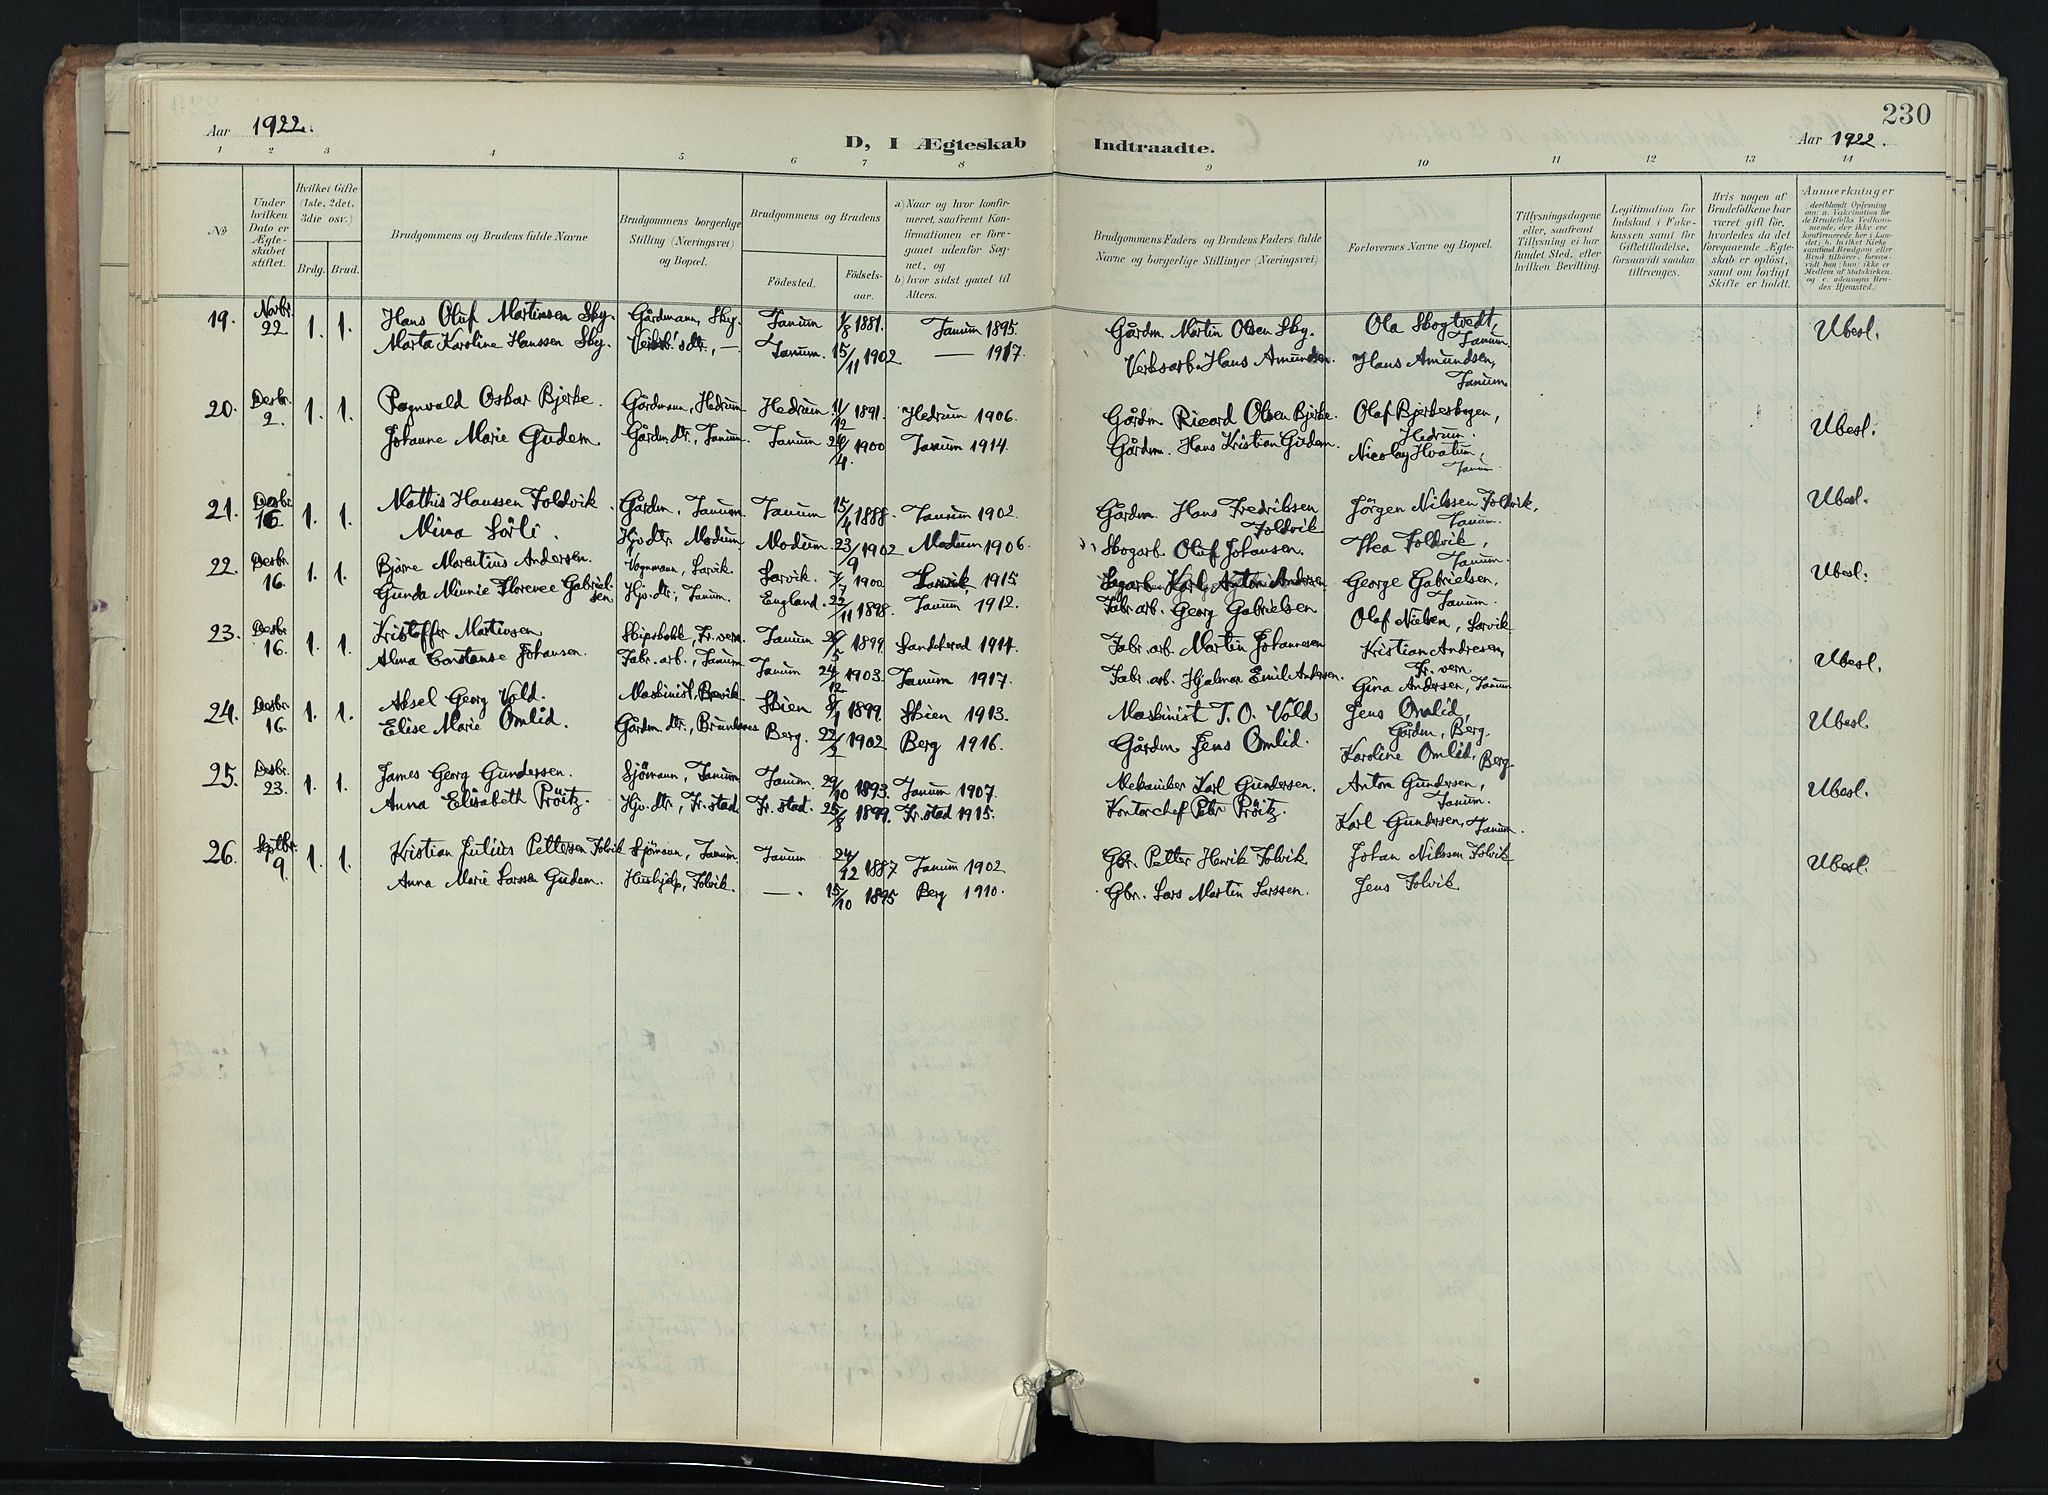 Aar 1922.
D, I Ægteskab Indtraadte.
230
Aar 1922.
1 2 3 4 5 6 7 8 9 10 11 12 13 14
No
Under hvilken Dato er Ægteskabet stiftet.
Hvilket Gifte (1ste, 2det, 3die osv.)
Brdg. Brud.
Brudgommens og Brudens fulde Navne
Brudgommens borgerlige Stilling (Næringsvei) og Bopæl.
Brudgommens og Brudens
Födested. Födselsaar.
a) Naar og hvor konfirmeret, saafremt Konfirmationen er foregaaet udenfor Sognet, og
b) hvor sidst gaaet til Alters.
Brudgommens Faders og Brudens Faders fulde Navne og borgerlige Stillinger (Næringsvei)
Forlovernes Navne og Bopæl.
Tillysningsdagene eller, saafremt Tillysning ei har fundet Sted, efter hvilken Bevilling.
Legitimation for Indskud i Enkekassen samt for Giftetilladelse, forsaavidt saadan tiltrænges.
Hvis nogen af Brudefolkene har været gift för, hvorledes da det foregaaende Ægteskab er oplöst, samt om lovligt Skifte er holdt.
Anmærkninger
(deriblandt Oplysning om: a. Vakcination for de Brudefolks Vedkommende, der ikke ere konfirmerede her i Landet; b. hvilket Kirkesamfund Brudgom eller Brud tilhörer, forsaavidt han (hun) ikke er Medlem af Statskirken, og c. udensogns Brudes Hjemsted.)
19. Novbr. 22 1. 1. Hans Oluf Martinsen Sky. Gårdmann, Sky. Tanum 1/8 1881. Tanum 1895. Gårdm. Martin Olsen Sky. Ola Skogtvedt, Tanum. Ubesl.
Marta Karoline Hanssen Sky. Verksarb.'s dtr., — Tanum. 15/11 1902 — 1917. Verksarb. Hans Amundsen. Hans Amundsen, Tanum.
20. Desbr. 2. 1. 1. Ragnvald Oskar Bjerke. Gårdmann, Hedrum Hedrum 11/12 1891. Hedrum 1906. Gårdm. Ricard Olsen Bjerke. Olaf Bjerkeskogen, Hedrum. Ubesl.
Johanne Marie Gudem Gårdm. dtr., Tanum. Tanum /4 1900 Tanum 1914. Gårdm. Hans Kristian Gudem. Nicolay Hvatum, Tanum.
21. Desbr. 16 1. 1. Mathis Hanssen Foldvik. Gårdm., Tanum. Tanum 15/4 1888. Tanum 1902. Gårdm. Hans Fredriksen Foldvik Jörgen Nilssen Foldvik, Tanum. Ubesl.
Mina Sörli. Hjv. dtr. Modum. Modum. 23/9 1902 Modum 1906. Skogarb. Oluf Johansen. Thea Foldvik, Tanum.
22. Desbr. 16. 1. 1. Bjarne Marentius Andersen. Vognmann, Larvik. Larvik. 7/7 1900 Larvik, 1915 Sagarb. Karl Anton Andersen George Gabrielsen, Tanum. Ubesl.
Gunda Minnie Florence Gabrielsen Hjv. dtr., Tanum. England. 22/11 1898. Tanum 1912. Fabr. arb. Georg Gabrielsen Olaf Nielsen, Larvik
23. Desbr. 16. 1. 1. Kristoffer Martinsen Skipskokk, Fr. vern Tanum /5 1899 Sandeherad 1914. Fabr. arb. Martin Johannesen Kristian Andresen, Fr. vern Ubesl.
Alma Constanse Johansen. Fabr. arb., Tanum Tanum 24/12 1903. Tanum 1917. Fabr. arb. Hjalmar Emil Andersen. Gina Andersen, Tanum
24. Desbr. 16 1. 1. Aksel Georg Vold. Maskinist, Skien 8/1 1899. Skien 1913. Maskinist T. O. Vold Jens Omlid, Gårdm, Berg. Ubesl.
Elise Marie Omlid. Gårdm dtr., Brunlanes Berg. 22/2 1902 Berg 1916. Gårdm Jens Omlid. Karoline Omlid, Berg.
25. Desbr. 23. 1. 1. James Georg Gundersen. Sjömann, Tanum Tanum. 29/10 1893. Tanum 1907. Mekaniker Karl Gundersen. Anton Gundersen, Tanum. Ubesl.
Anna Elisabeth Pröitz. Hjv. dtr., Fr. stad Fr. stad. 25/8 1899. Fr. stad 1915. Kontorchef Peter Pröitz. Karl Gundersen, Tanum.
26. Septbr. 9. 1. 1. Kristian Julius Pettersen Folvik Sjömann, Tanum. Tanum 24/12 1887 Tanum 1902 Gbr. Petter Henrik Folvik. Johan Nilssen Folvik Ubesl.
Anna Marie Larssen Gudem. Hushjelp, Folvik. — . 15/10 1895 Berg 1910. Gbr. Lars Martin Larssen. Jens Folvik